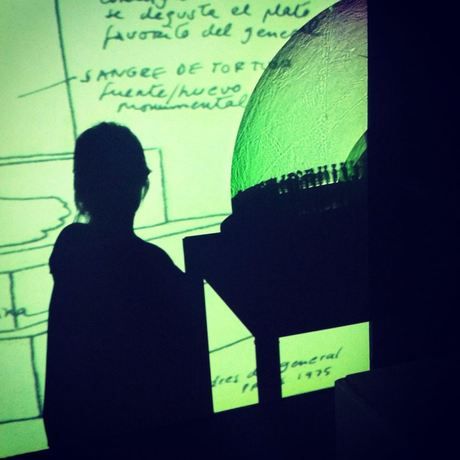 se degusta el plato
favorito del general
SANGRE DE TORTUGA
fuente/huevo
monumental
general
1975